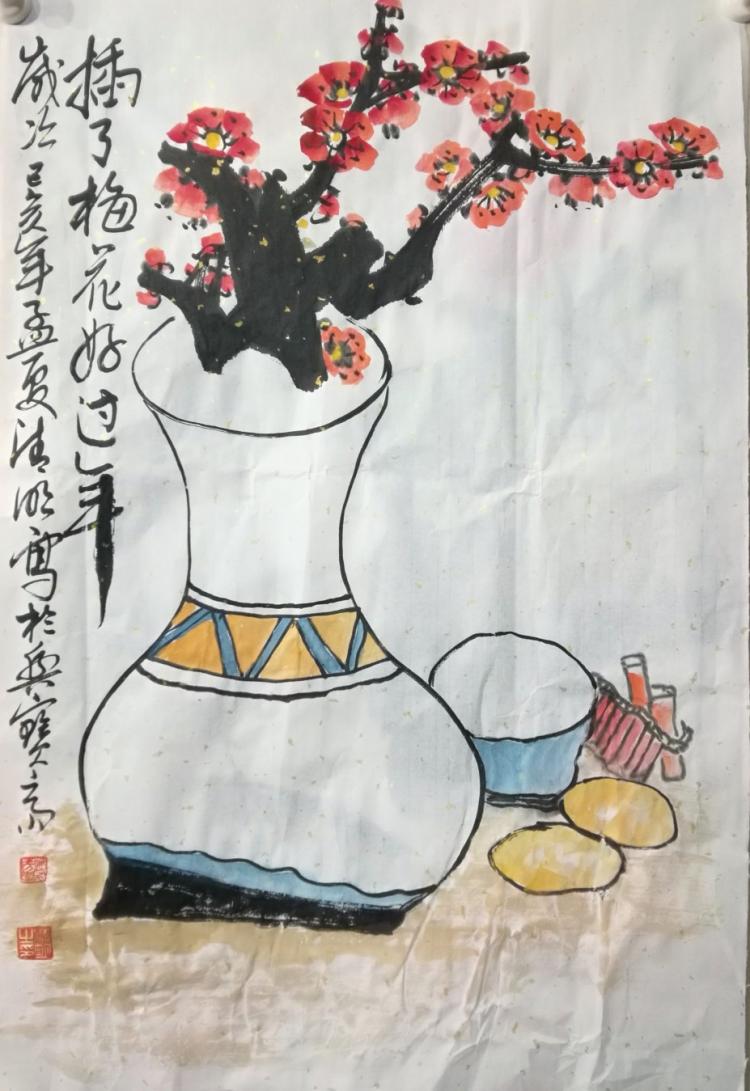 插了梅花好过年
岁次己亥年孟夏清明写于兴宝斋